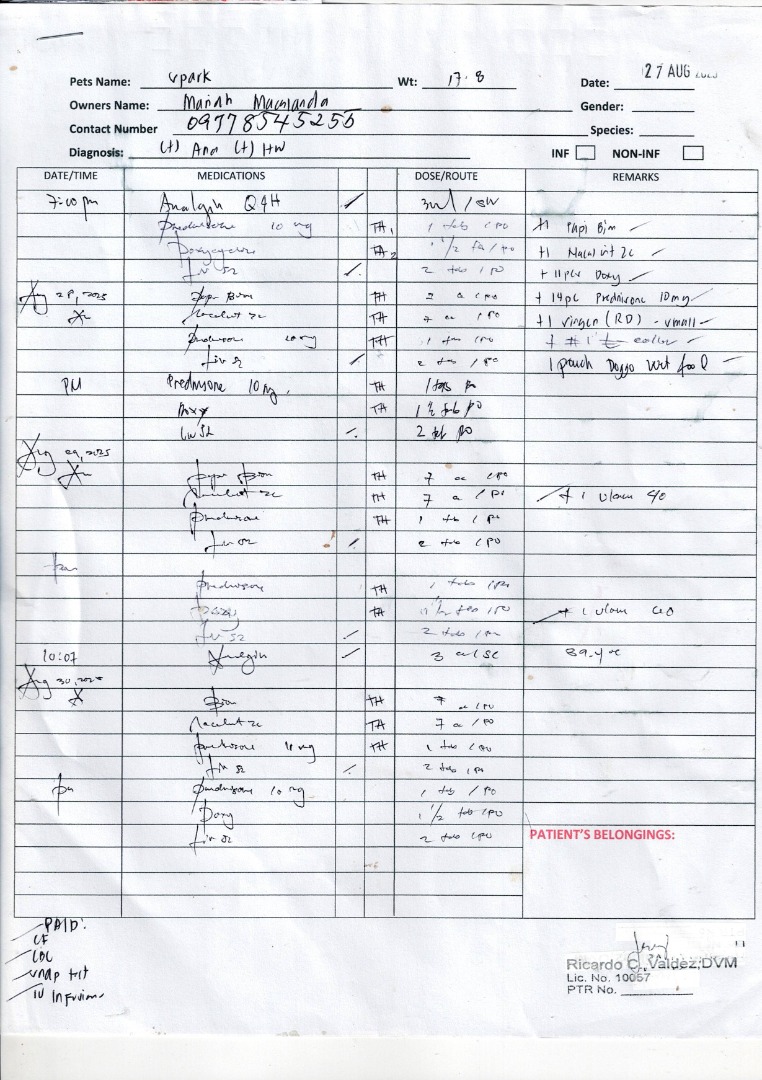 Pets Name: Spark Wt: 17.8 Date: 27 AUG
Owners Name: Mariah Gender:
Contact Number 09778545256 Species:
Diagnosis: (+) Ana (+) HW INF NON-INF
DATE/TIME MEDICATIONS DOSE/ROUTE REMARKS
7:00 pm Analgin Q4H 3ml /
Prednisone 10 mg TH 1 tab / PO +1 Papi Bion
Doxycycline TH 1 1/2 tab / PO +1 Nacalvit zc
Liv 52 2 tab / PO + 11pcs Doxy
Aug 28, 2025 Papi Bion TH 7 cc / PO + 14pc Prednisone 10mg
Am Nacalvit zc TH 7 cc / PO +1 (RD) - small
Prednisone 10 mg TH 1 tab / PO + #1 collar
Liv 52 2 tab / PO 1 pouch Doggo wet food
PM Prednisone 10 mg. TH 1 tab po
Doxy TH 1 1/2 tab po
Liv 52 2 tab po
Aug 29, 2025
Am Papi Bion TH 7 cc / PO
Nacalvit zc TH 7 cc / PO + 1 ulam 40
Prednisone TH 1 tab / PO
Liv 52 2 tab / PO
pm
Prednisone TH 1 tab / PO
Doxy TH 1 1/2 tab / PO + 1 ulam
Liv 52 2 tab / PO
10:07 Analgin 3 cc / SC 39.4 °C
Aug 30, 2025
A Bion TH 7 cc / PO
Nacalvit zc TH 7 cc / PO
Prednisone 10 mg TH 1 tab / PO
Liv 52 2 tab / PO
pm Prednisone 10 mg 1 tab / PO
Doxy 1 1/2 tab / PO
Liv 52 2 tab / PO
PATIENT'S BELONGINGS:
PAID:
CF
CBC
snap test
IV Infusion
Ricardo C. Valdez, DVM
Lic. No. 10057
PTR No.